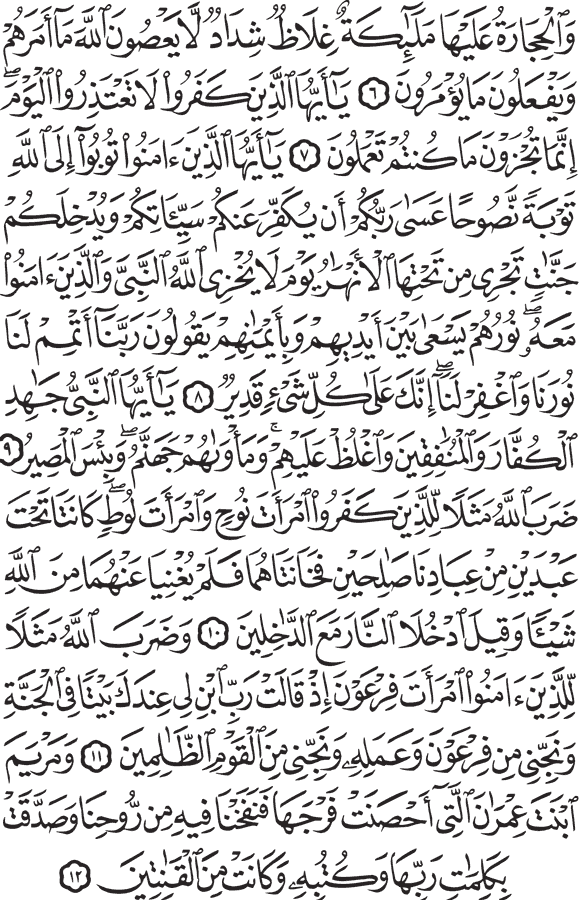 وَٱلْحِجَارَةُ عَلَيْهَا مَلَٰٓئِكَةٌ غِلَاظٌ شِدَادٌ لَّا يَعْصُونَ ٱللَّهَ مَآ أَمَرَهُمْ
وَيَفْعَلُونَ مَا يُؤْمَرُونَ ٦ يَٰٓأَيُّهَا ٱلَّذِينَ كَفَرُوا۟ لَا تَعْتَذِرُوا۟ ٱلْيَوْمَ ۖ
إِنَّمَا تُجْزَوْنَ مَا كُنتُمْ تَعْمَلُونَ ٧ يَٰٓأَيُّهَا ٱلَّذِينَ ءَامَنُوا۟ تُوبُوٓا۟ إِلَى ٱللَّهِ
تَوْبَةً نَّصُوحًا عَسَىٰ رَبُّكُمْ أَن يُكَفِّرَ عَنكُمْ سَيِّـَٔاتِكُمْ وَيُدْخِلَكُمْ
جَنَّٰتٍ تَجْرِى مِن تَحْتِهَا ٱلْأَنْهَٰرُ يَوْمَ لَا يُخْزِى ٱللَّهُ ٱلنَّبِىَّ وَٱلَّذِينَ ءَامَنُوا۟
مَعَهُۥ ۖ نُورُهُمْ يَسْعَىٰ بَيْنَ أَيْدِيهِمْ وَبِأَيْمَٰنِهِمْ يَقُولُونَ رَبَّنَآ أَتْمِمْ لَنَا
نُورَنَا وَٱغْفِرْ لَنَآ ۖ إِنَّكَ عَلَىٰ كُلِّ شَىْءٍ قَدِيرٌ ٨ يَٰٓأَيُّهَا ٱلنَّبِىُّ جَٰهِدِ
ٱلْكُفَّارَ وَٱلْمُنَٰفِقِينَ وَٱغْلُظْ عَلَيْهِمْ ۚ وَمَأْوَىٰهُمْ جَهَنَّمُ ۖ وَبِئْسَ ٱلْمَصِيرُ ٩
ضَرَبَ ٱللَّهُ مَثَلًا لِّلَّذِينَ كَفَرُوا۟ ٱمْرَأَتَ نُوحٍ وَٱمْرَأَتَ لُوطٍ ۖ كَانَتَا تَحْتَ
عَبْدَيْنِ مِنْ عِبَادِنَا صَٰلِحَيْنِ فَخَانَتَاهُمَا فَلَمْ يُغْنِيَا عَنْهُمَا مِنَ ٱللَّهِ
شَيْـًٔا وَقِيلَ ٱدْخُلَا ٱلنَّارَ مَعَ ٱلدَّٰخِلِينَ ١٠ وَضَرَبَ ٱللَّهُ مَثَلًا
لِّلَّذِينَ ءَامَنُوا۟ ٱمْرَأَتَ فِرْعَوْنَ إِذْ قَالَتْ رَبِّ ٱبْنِ لِى عِندَكَ بَيْتًا فِى ٱلْجَنَّةِ
وَنَجِّنِى مِن فِرْعَوْنَ وَعَمَلِهِۦ وَنَجِّنِى مِنَ ٱلْقَوْمِ ٱلظَّٰلِمِينَ ١١ وَمَرْيَمَ
ٱبْنَتَ عِمْرَٰنَ ٱلَّتِىٓ أَحْصَنَتْ فَرْجَهَا فَنَفَخْنَا فِيهِ مِن رُّوحِنَا وَصَدَّقَتْ
بِكَلِمَٰتِ رَبِّهَا وَكُتُبِهِۦ وَكَانَتْ مِنَ ٱلْقَٰنِتِينَ ١٢